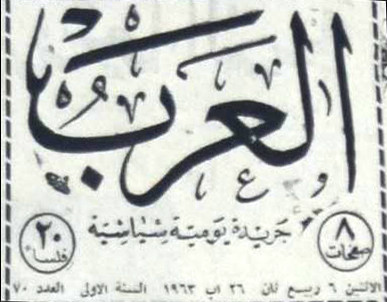 العرب
جريدة يومية سياسية
٨ صفحات
٢٠ فلسا
الاثنين ٦ ربيع ثان ٢٦ اب ١٩٦٣ السنة الاولى العدد ٧٠